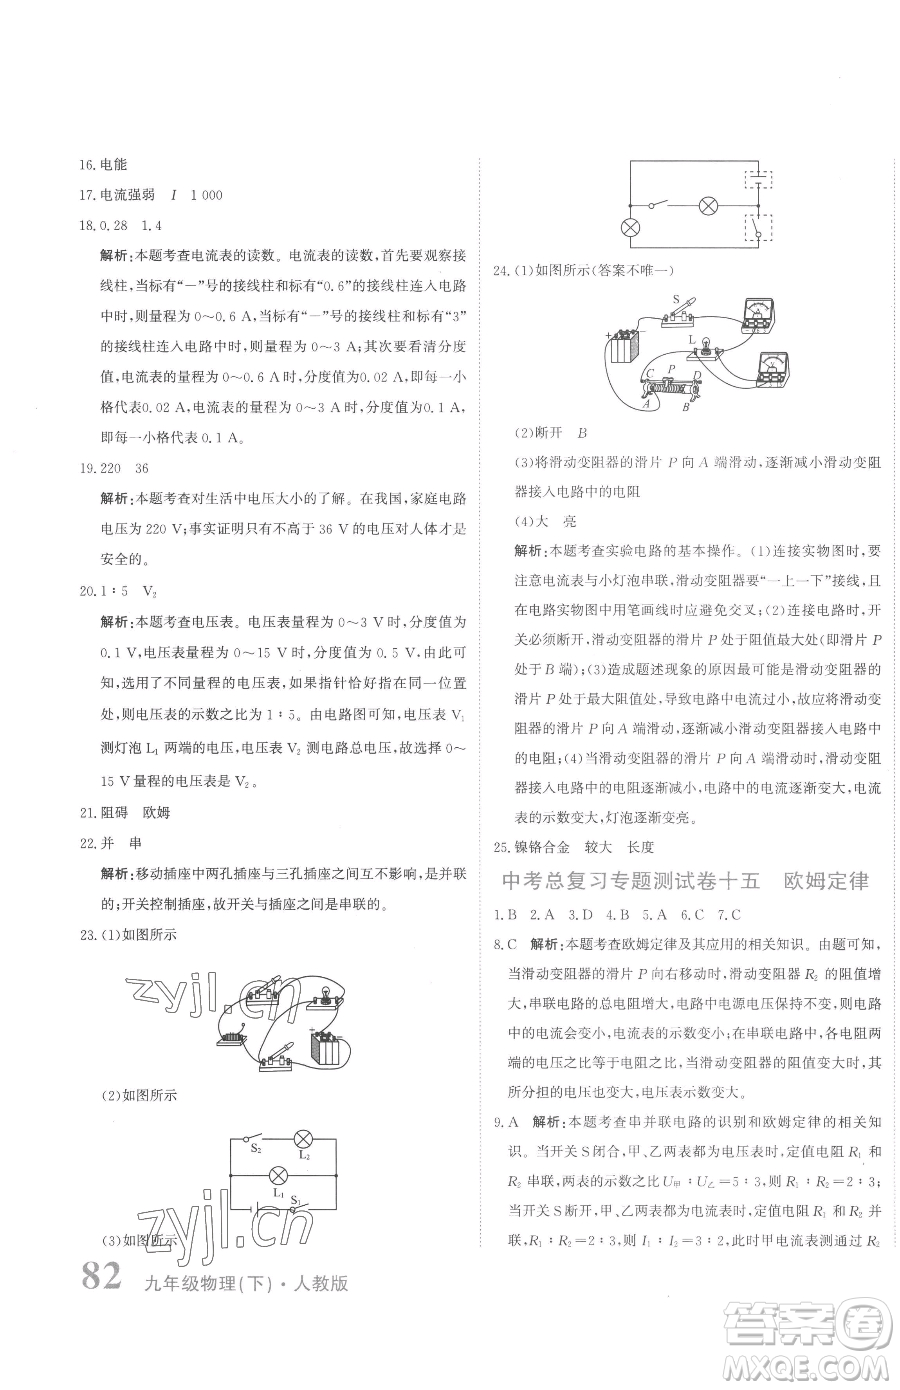 16.电能
17.电流强弱　I　1 000
18.0.28　1.4
解析:本题考查电流表的读数。电流表的读数,首先要观察接
线柱,当标有“－”号的接线柱和标有“0.6”的接线柱连入电路
中时,则量程为 0～0.6 A;当标有“－”号的接线柱和标有“3”
的接线柱连入电路中时,则量程为 0～3 A;其次要看清分度
值,电流表的量程为 0～0.6 A 时,分度值为0.02 A(即每一小
格代表0.02 A,电流表的量程为 0～3 A 时,分度值为0.1 A,
即每一小格代表 0.1 A。
19.220　36
解析:本题考查对生活中电压大小的了解。在我国,家庭电路
电压为 220 V;事实证明只有不高于 36 V 的电压对人体才是
安全的。
20.1∶5　V₂
解析:本题考查电压表。电压表量程为 0～3 V 时,分度值为
0.1 V,电压表量程为 0～15 V 时,分度值为 0.5 V。由题意可
知,选用了不同量程的电压表。如果指针恰好在同一位置
处,则电压表的示数之比为 1∶5。由电路图可知,电压表 V₁
测灯泡 L₁ 两端的电压,电压表 V₂ 测电路总电压,故选择 0～
15 V 量程的电压表是 V₂。
21.阻碍　欧姆
22.并　串
解析:移动插座中两孔插座与三孔插座互不影响,是并联在一起
的;开关控制插座,故开关与插座是串联的。
23.(1)如图所示
zyjl.cn
(2)如图所示
S₂
L₂
L₁
S₁
zyjl.cn
(3)如图所示
82 九年级物理(下)·人教版
24.(1)如图所示(答案不唯一)
S
L
C P D
A B
(2)断开　B
(3)将滑动变阻器的滑片 P 向 A 端滑动,逐渐减小滑动变阻
器接入电路中的电阻
(4)大　亮
解析:本题考查实验电路的基本操作。(1)连接实物图时,要
注意电流表与小灯泡串联,滑动变阻器要“一上一下”接线,且
在电路实物图中用笔画线时应避免交叉;(2)连接电路时,开
关必须断开,滑动变阻器的滑片 P 处于阻值最大处(即滑片 P
处于 B 端);(3)造成题述现象的原因可能是滑动变阻器的
滑片 P 处于最大阻值处,导致电路中电流过小,故应将滑动变
阻器的滑片 P 向 A 端滑动,逐渐减小滑动变阻器接入电路中
的电阻;(4)当滑动变阻器的滑片 P 向 A 端滑动时,滑动变阻
器接入电路中的阻值逐渐减小,电路中的电流逐渐变大,电流
表的示数变大,灯泡逐渐变亮。
25.镍铬合金　较大　长度
中考总复习专题测试卷十五　欧姆定律
1.B　2.A　3.D　4.B　5.A　6.C　7.C
8.C　解析:本题考查欧姆定律及其应用的相关知识。由题可知,
当滑动变阻器的滑片 P 向右移动时,滑动变阻器 R₂ 的阻值增
大,串联电路的总电阻增大,电路中电源电压保持不变,则电路
中的电流会变小,电流表的示数变小;在串联电路中,电阻两
端的电压之比等于电阻之比,当滑动变阻器的阻值变大时,其
所分担的电压也变大,电压表示数变大。
9.A　解析:本题考查串并联电路的识别和欧姆定律的相关知
识。当开关 S 闭合,甲、乙两表都为电压表时,定值电阻 R₁ 与
R₂ 串联,因为两电表的示数之比U甲∶U乙＝5∶3,则 R₁∶R₂＝2∶3;
当开关 S 断开,甲、乙两表都为电流表时,定值电阻 R₁ 和 R₂ 并
联,R₁∶R₂＝2∶3,则 I₁∶I₂＝3∶2,此时甲电流表测通过 R₂
答案圈
MXQE.COM